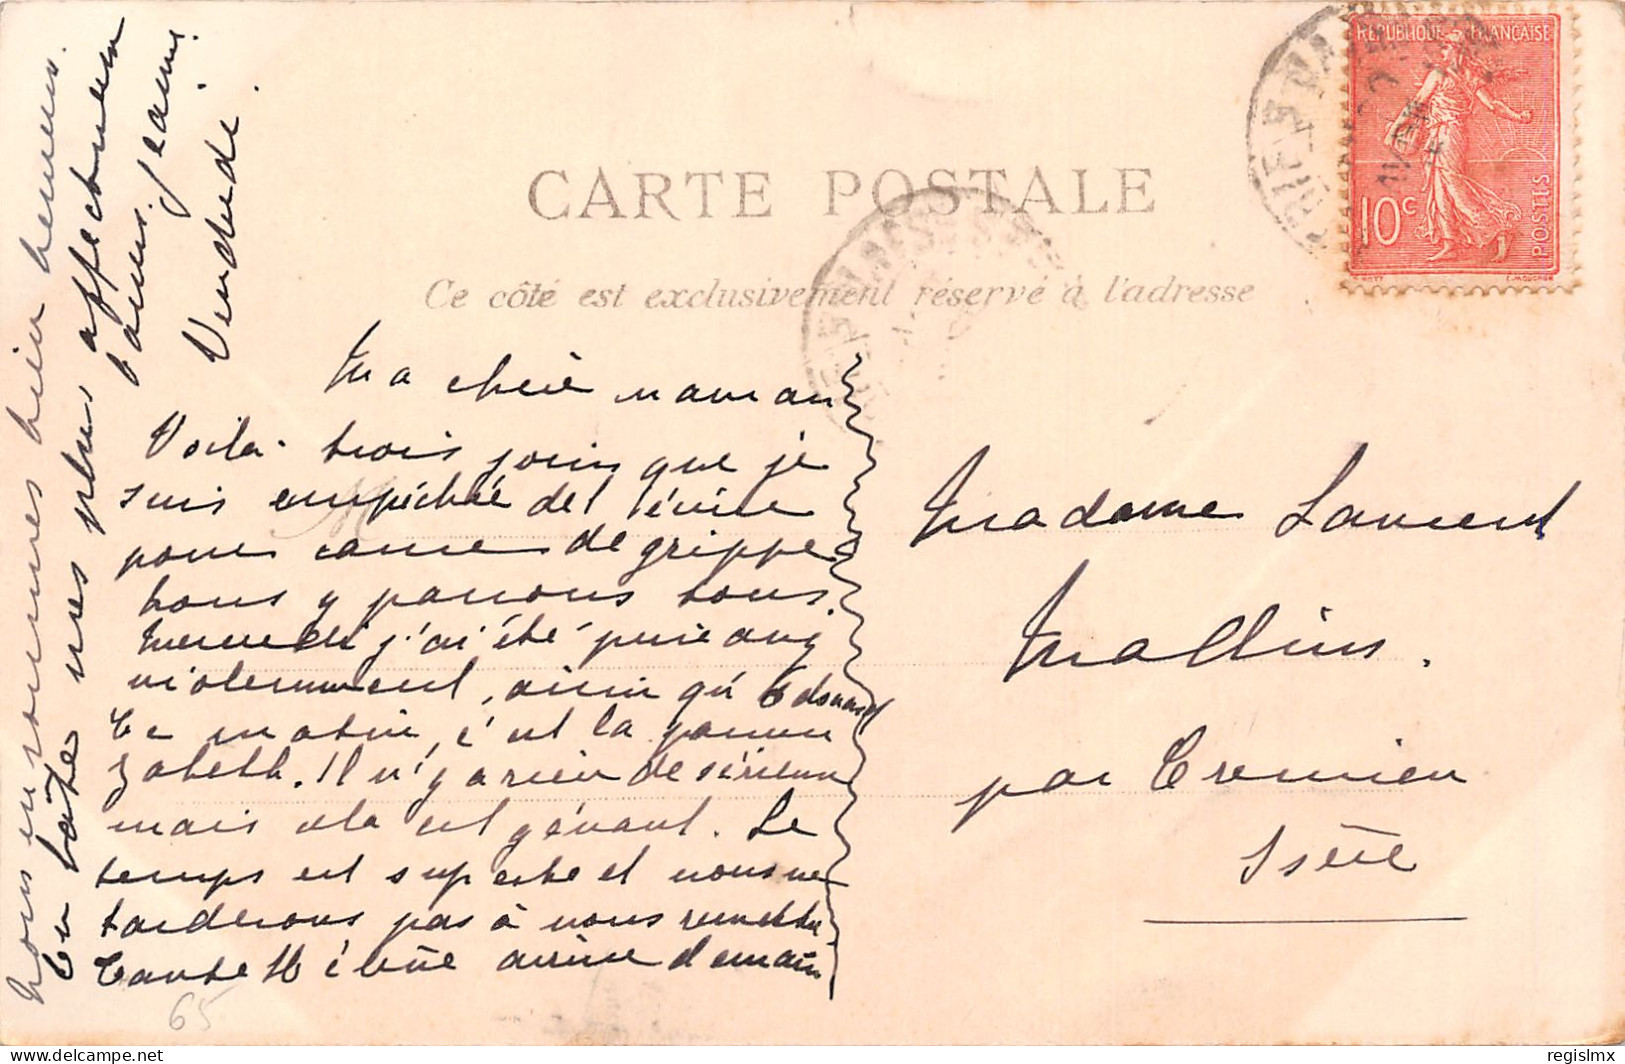 RÉPUBLIQUE FRANÇAISE
10c
POSTES
CARTE POSTALE
Ce côté est exclusivement réservé à l'adresse
Ma chère maman
Voilà trois jours que je
suis empêchée de t'écrire
pour cause de grippe
Nous y passons tous.
Mercredi j'ai été prise assez
violemment, ainsi qu'Edouard
Ce matin, c'est la
. Il n'y a rien de sérieux
mais cela est gênant. Le
temps est superbe et nous ne
tarderons pas à nous remettre
Tante Hélène arrive demain
nous en sommes bien heureux.
En hâte mes plus affectueux
baisers. Jeanne
Vendredi.
Madame Laurent
Mallins.
par Cremieu
Isère
65
delcampe.net
regislmx